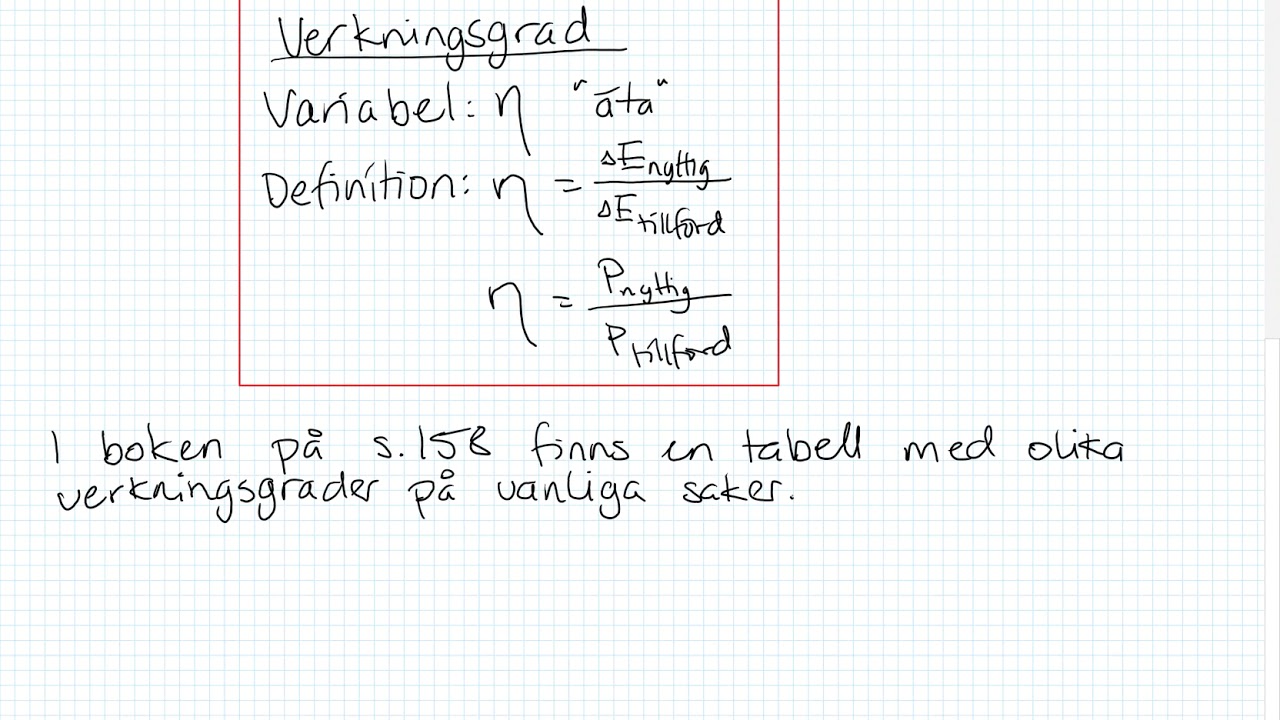 Verkningsgrad
Variabel: η "äta"
Definition: η = ΔEnyttig / ΔEtillförd
η = Pnyttig / Ptillförd
I boken på s.158 finns en tabell med olika
verkningsgrader på vanliga saker.